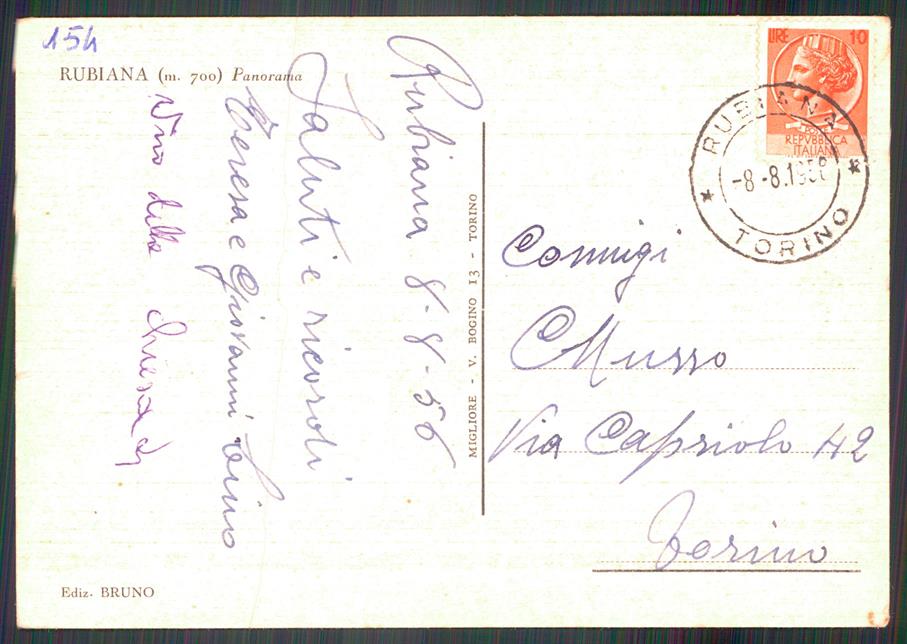 154
RUBIANA (m. 700) Panorama
Rubiana 8-8-56
Saluti e ricordi
Teresa e Giovanni
Ediz. BRUNO
MIGLIORE - V. BOGINO 13 - TORINO
LIRE 10
POSTE
REPVBBLICA
ITALIANA
RUBIANA
-8.-8.195
TORINO
Coniugi
Musso
Via Capriolo 42
Torino